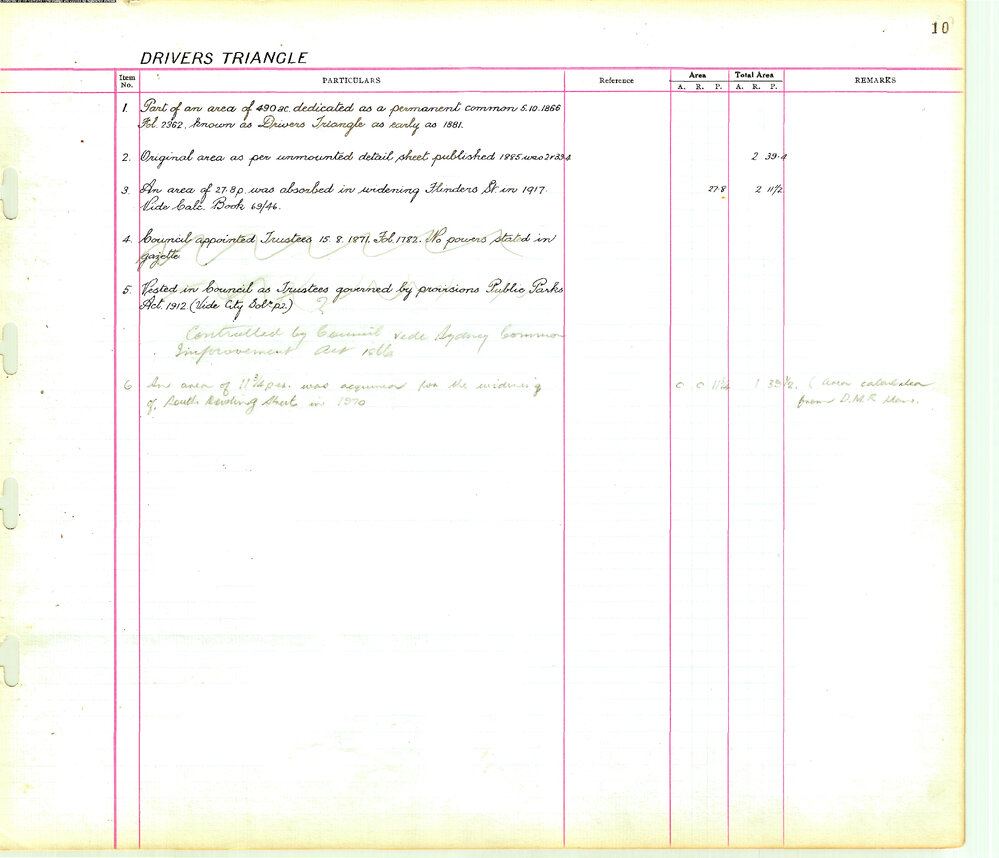 10
DRIVERS TRIANGLE
Item No. PARTICULARS Reference Area Total Area REMARKS
A. R. P. A. R. P.
1. Part of an area of 490 ac. dedicated as a permanent common 5.10.1866
Fol. 2362, known as Drivers Triangle as early as 1881.
2. Original area as per unmounted detail sheet published 1885 was 2r 39.4 2 39.4
3. An area of 27.8 p. was absorbed in widening Flinders St in 1917. 27.8 2 11½
Vide Calc. Book 69/46.
4. Council appointed Trustees 15.8.1871. Fol. 1782. No powers stated in
gazette
5. Vested in Council as Trustees governed by provisions Public Parks
Act. 1912. (Vide City Solr p2.) ?
Controlled by Council vide Sydney Common
Improvement Act 1866
6. An area of 11¾ pers. was acquired for the widening 0 0 11¾ 1 39½ (Area calculated
of South Dowling Street in 1970 from D.M.R.